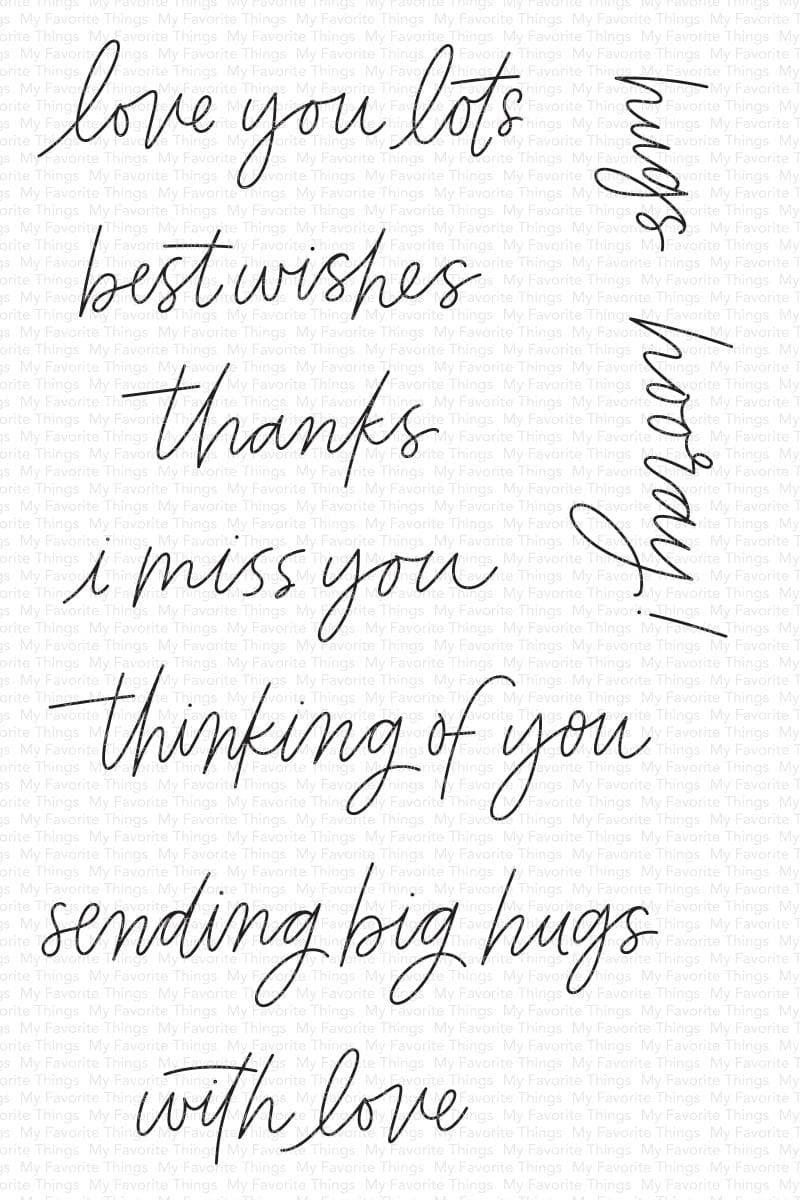 love you lots
best wishes
thanks
i miss you
thinking of you
sending big hugs
with love
hugs
hooray!
My Favorite Things